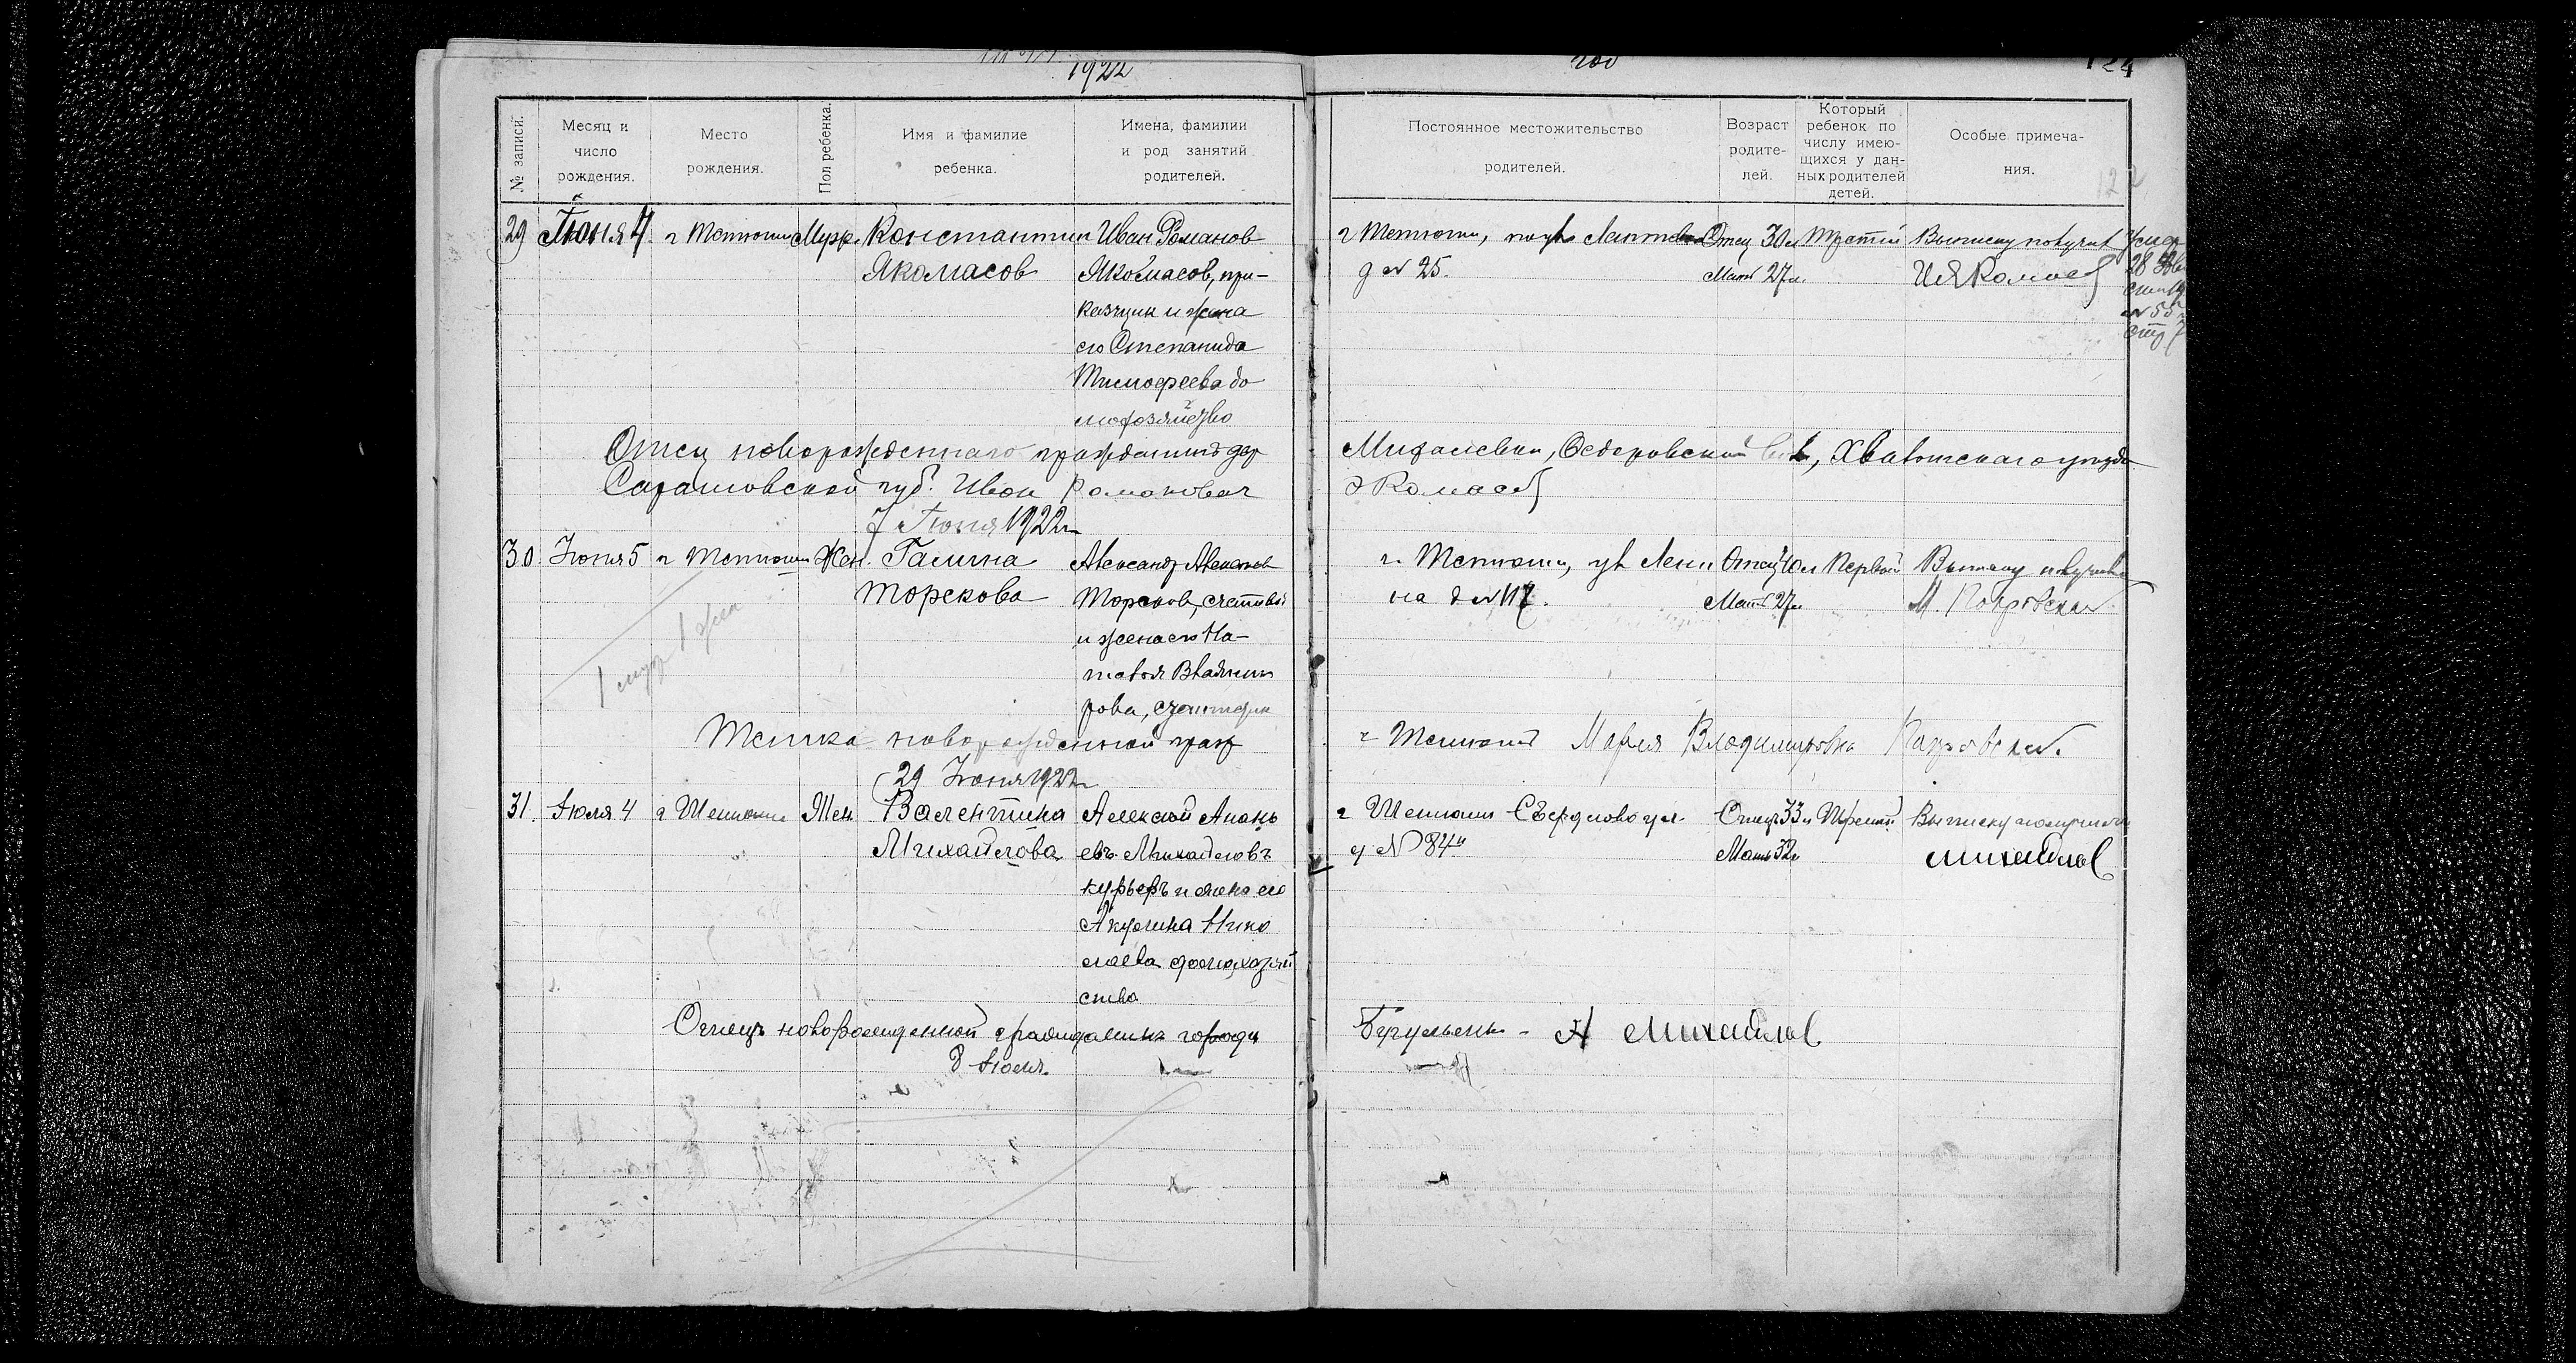 1922
год
124
№ записи.
Месяц и
число
рождения.
Место
рождения.
Пол ребенка.
Имя и фамилие
ребенка.
Имена, фамилии
и род занятий
родителей.
Постоянное местожительство
родителей.
Возраст
родите-
лей.
Который
ребенок по
числу имею-
щихся у дан-
ных родителей
детей.
Особые примеча-
ния.
122
29 Июня 4. г Тетюши Муж. Константин
Якомасов
Иван Романов
Якомасов, при-
казчик и жена
его Степанида
Тимофеева до
мохозяйство
г Тетюши,
д № 25.
Отец 30 л
Мать 27 л.
Третий
Выписку получил
И Якомасов
Умер
28
№ 55
Отец новорожденнаго гражданин дер
Михалевки, Федоровской вол, Хвалынскаго уезда
Саратовской губ. Иван Романович
Якомасов
7 Июня 1922 г
30. Июня 5 г Тетюши Жен. Галина
Торскова
Александр
Торсков, счетовод
и жена его На-
талья Владими
рова,
г. Тетюши, ул Лени
на д № 117.
Отец 40 л
Мать 27 л.
Первый
Выписку получила
М. Покровская
1 муж 1 жен
Тетка новорожденной граж
г Тетюши Мария Владимировна Покровская.
29 Июня 1922 г
31. Июля 4 г Тетюши Жен. Валентина
Михайлова
Алексей Анань
евъ Михайловъ
курьеръ и жена его
Акулина Нико
лаева домохозяй
ство
г Тетюши Свердлова ул.
д № 84й
Отец 33 л
Мать 32 г
Третий
Выписку получил
Михайлов
Отецъ новорожденной гражданинъ города
Бугульмы - А Михайлов
8 Июля.